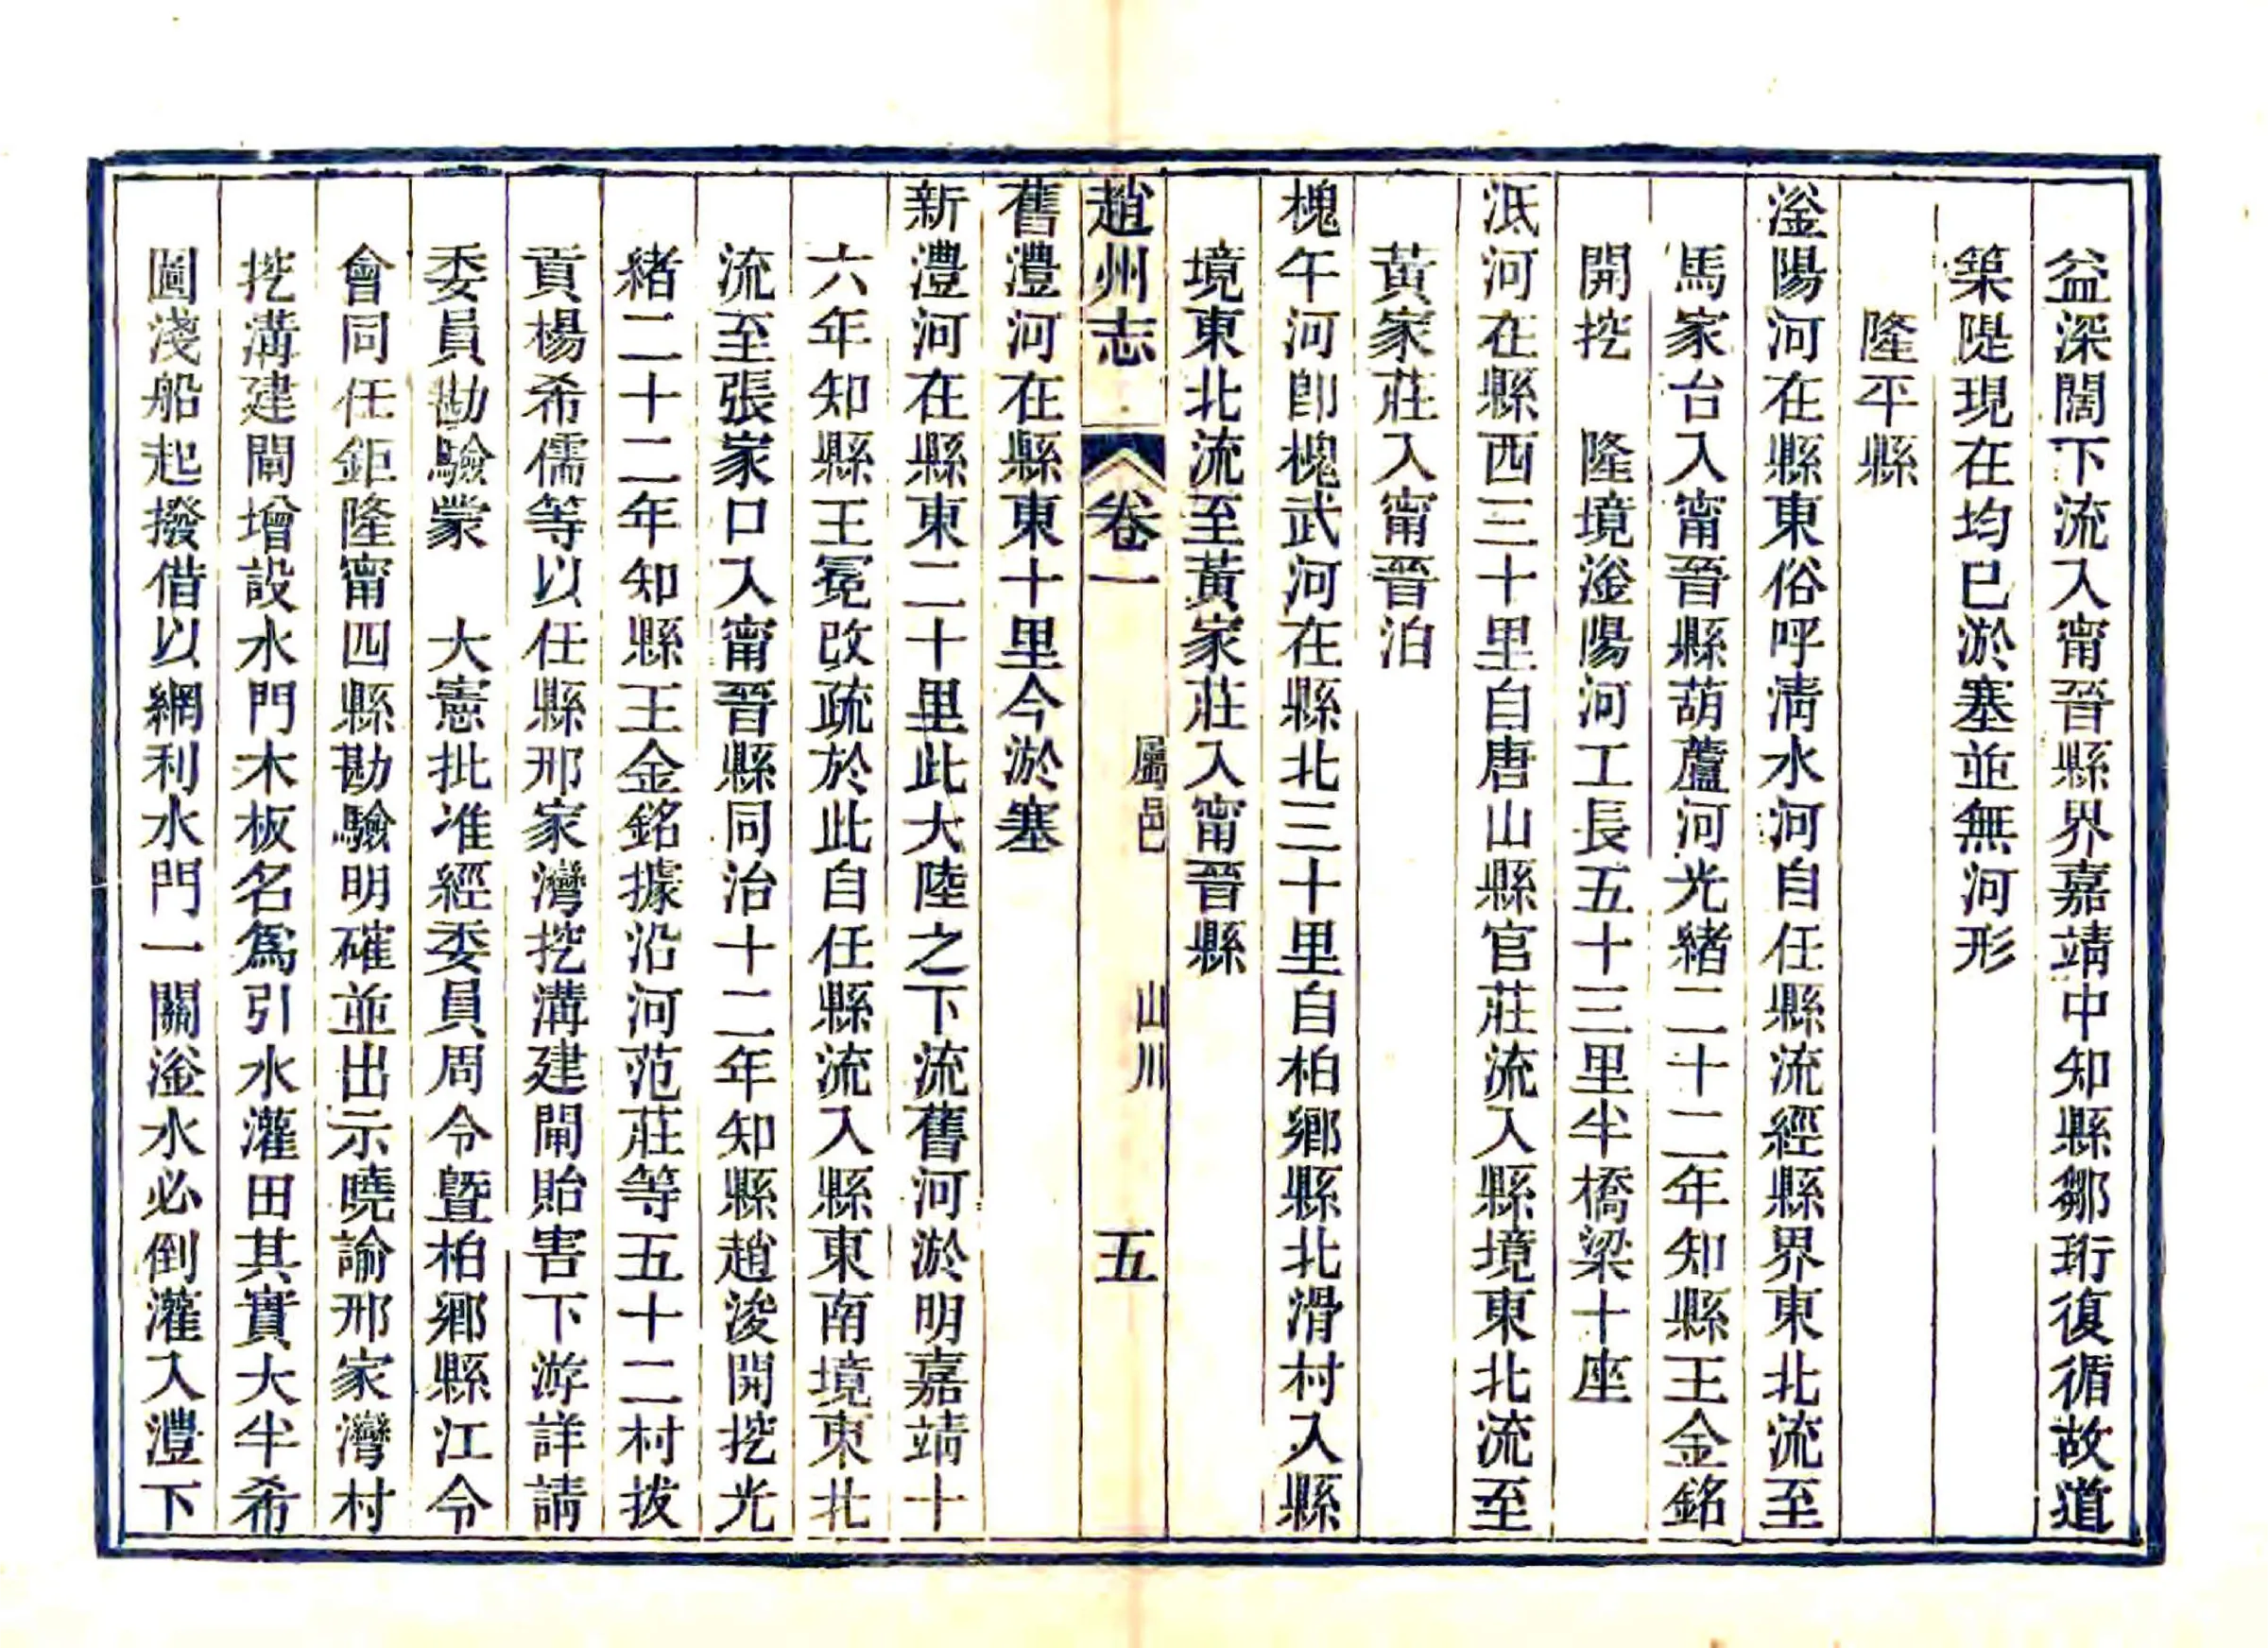 益深闊下流入甯晉縣界嘉靖中知縣鄒珩復循故道
築隄現在均已淤塞並無河形
隆平縣
滏陽河在縣東俗呼淸水河自任縣流經縣界東北流至
馬家台入甯晉縣葫蘆河光緒二十二年知縣王金銘
開挖　隆境滏陽河工長五十三里半橋梁十座
泜河在縣西三十里自唐山縣官莊流入縣境東北流至
黃家莊入甯晉泊
槐午河卽槐武河在縣北三十里自柏鄉縣北滑村入縣
境東北流至黃家莊入甯晉縣
趙州志　卷一　屬邑　山川　五
舊澧河在縣東十里今淤塞
新澧河在縣東二十里此大陸之下流舊河淤明嘉靖十
六年知縣王冕改疏於此自任縣流入縣東南境東北
流至張家口入甯晉縣同治十二年知縣趙浚開挖光
緒二十二年知縣王金銘據沿河范莊等五十二村拔
貢楊希儒等以任縣邢家灣挖溝建閘貽害下游詳請
委員勘驗蒙　大憲批准經委員周令暨柏鄉縣江令
會同任鉅隆甯四縣勘驗明確並出示曉諭邢家灣村
挖溝建閘增設水門木板名爲引水灌田其實大半希
圖淺船起撥借以網利水門一關滏水必倒灌入澧下